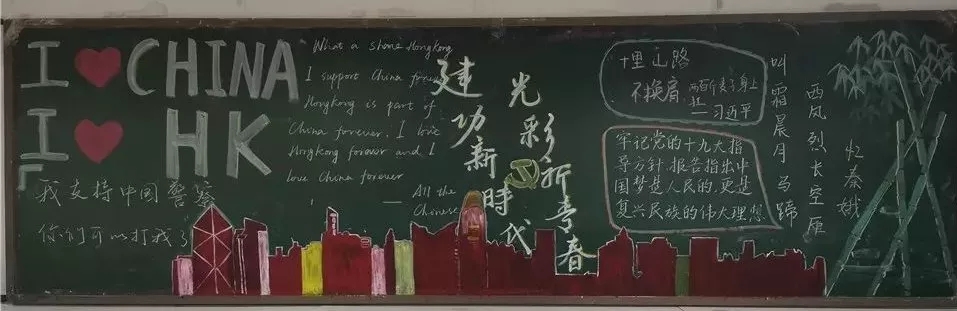 I ❤ CHINA
I ❤ HK
我支持中国警察
你们可以打我了
What a shame Hongkong
I support China forever
Hongkong is part of
China forever. I love
Hongkong forever and I
love China forever
— All the
Chinese
建功新時代
光彩折青春
十里山路
不换肩
两百斤麦子
—习近平
牢记党的十九大指
导方针.报告指出中
国梦是人民的,更是
复兴民族的伟大理想
忆秦娥
西风烈长空雁
叫霜晨月马蹄